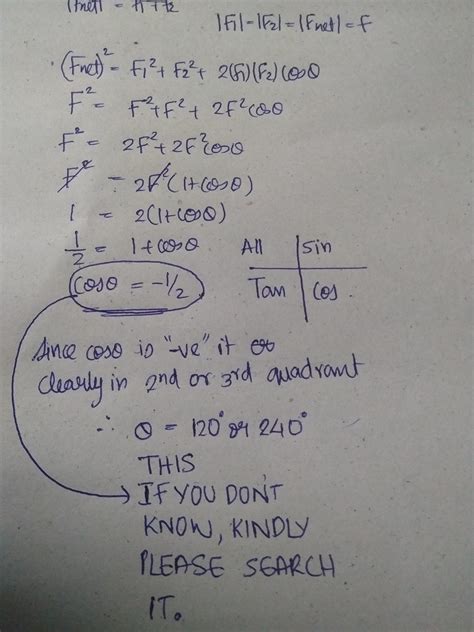 |Fnet| = F1+F2
|F1|-|F2| = |Fnet| = F
(Fnet)² = F1² + F2² + 2(F1)(F2)cosθ
F² = F²+F² + 2F²cosθ
F² = 2F²+2F²cosθ
F² = 2F²(1+cosθ)
1 = 2(1+cosθ)
1/2 = 1+cosθ
All | Sin
cosθ = -1/2
Tan | Cos
Since cosθ is "-ve" it
clearly in 2nd or 3rd quadrant
∴ θ = 120° or 240°
THIS
IF YOU DON'T
KNOW, KINDLY
PLEASE SEARCH
IT.